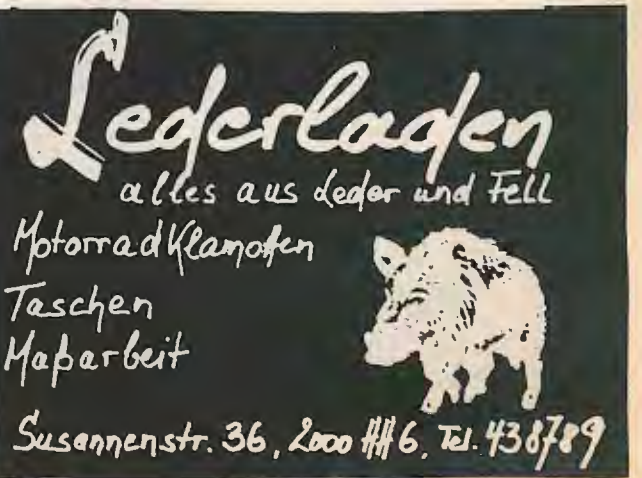 Lederladen
alles aus Leder und Fell
Motorrad Klamotten
Taschen
Maßarbeit
Susannenstr. 36, 2000 HH 6, Tel. 438789